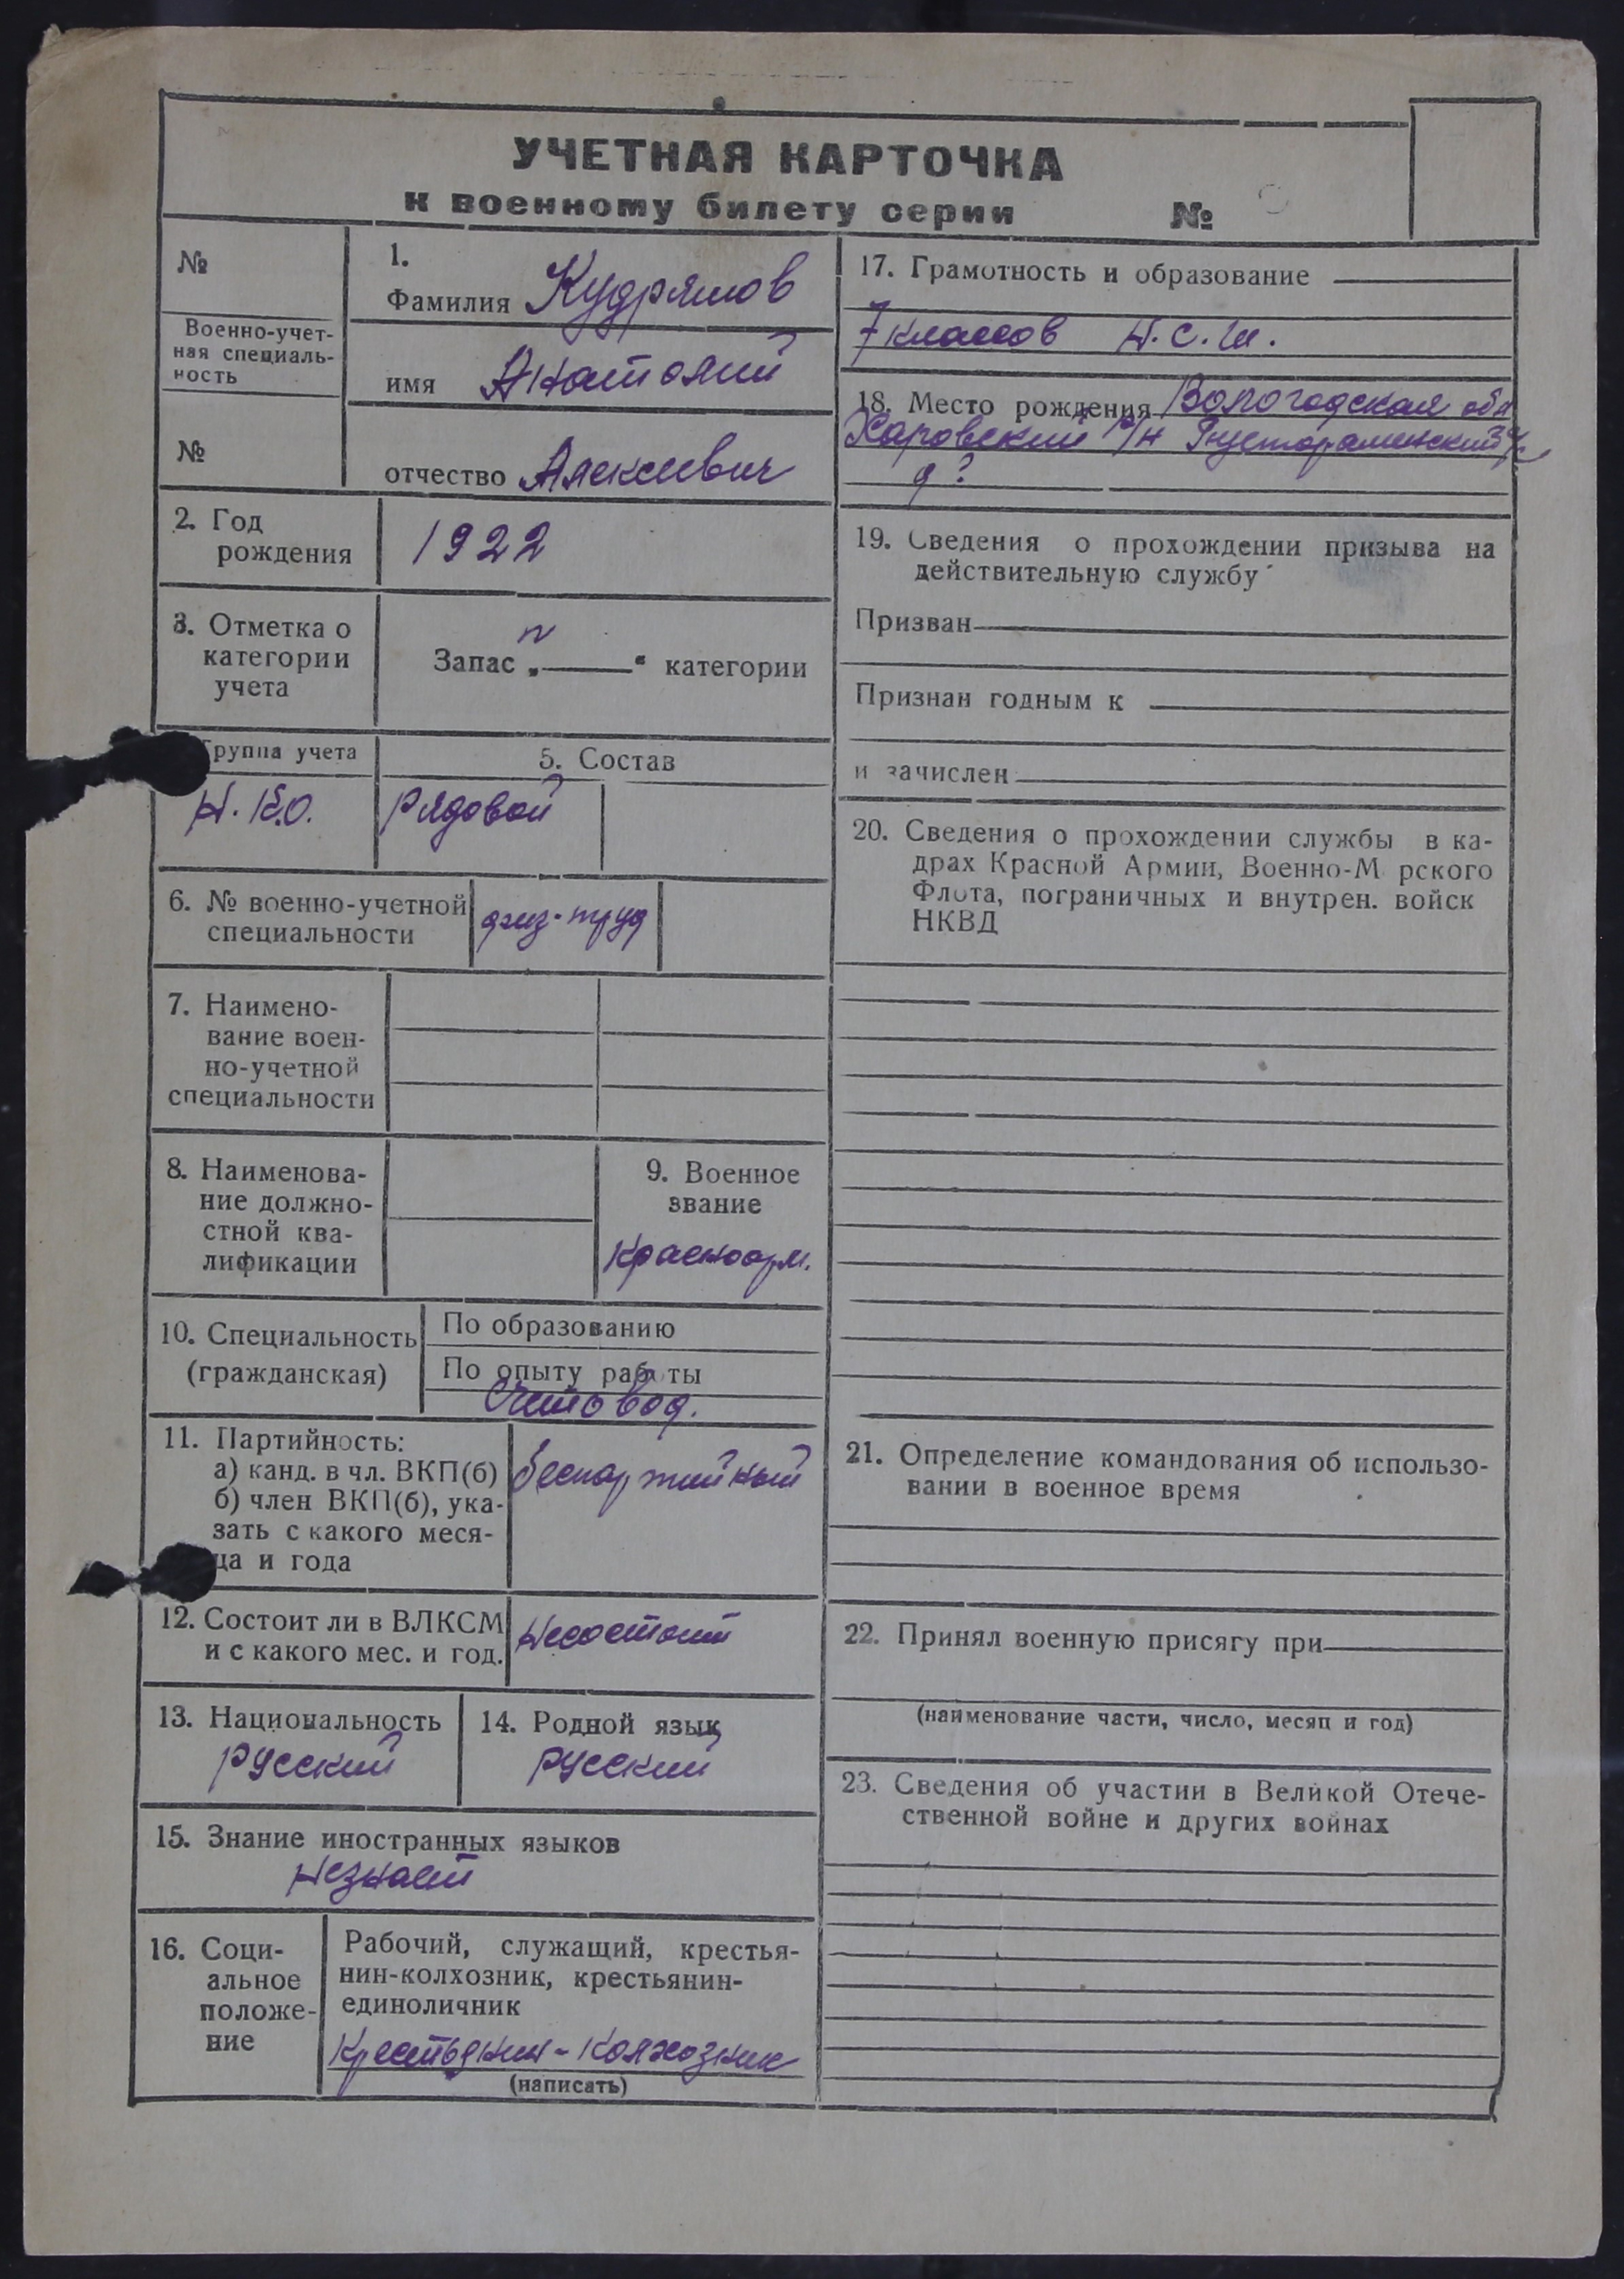 УЧЕТНАЯ КАРТОЧКА
к военному билету серии №
№
Военно-учет-
ная специаль-
ность
№
1.
Фамилия Кудряшов
имя Анатолий
отчество Алексеевич
2. Год
рождения
1922
3. Отметка о
категории
учета
Запас „ “ категории
Группа учета
Н.К.О.
5. Состав
Рядовой
6. № военно-учетной
специальности
физ-труд
7. Наимено-
вание воен-
но-учетной
специальности
8. Наименова-
ние должно-
стной ква-
лификации
9. Военное
звание
Красноарм.
10. Специальность
(гражданская)
По образованию
По опыту работы
Счетовод.
11. Партийность:
а) канд. в чл. ВКП(б)
б) член ВКП(б), ука-
зать с какого меся-
ца и года
Беспартийный
12. Состоит ли в ВЛКСМ
и с какого мес. и год.
Несостоит
13. Национальность
Русский
14. Родной язык
Русский
15. Знание иностранных языков
Незнает
16. Соци-
альное
положе-
ние
Рабочий, служащий, крестья-
нин-колхозник, крестьянин-
единоличник
Крестьянин-Колхозник
(написать)
17. Грамотность и образование
7 классов Н.С.Ш.
18. Место рождения Вологодская обл
Харовский р/н
д ?
19. Сведения о прохождении призыва на
действительную службу
Призван
Признан годным к
и зачислен
20. Сведения о прохождении службы в ка-
драх Красной Армии, Военно-М рского
Флота, пограничных и внутрен. войск
НКВД
21. Определение командования об использо-
вании в военное время
22. Принял военную присягу при
(наименование части, число, месяц и год)
23. Сведения об участии в Великой Отече-
ственной войне и других войнах